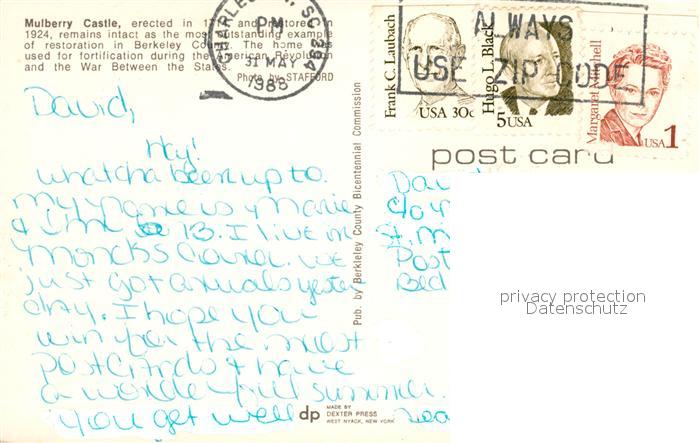 Mulberry Castle, erected in and restored in
1924, remains intact as the most outstanding example
of restoration in Berkeley County. The home was
used for fortification during the American Revolution
and the War Between the States.
Photo by STAFFORD
CHARLESTON, SC 294
PM
31 MAY
1985
ALWAYS
USE ZIP CODE
Frank C. Laubach
USA 30c
Hugo L. Black
5USA
Margaret Mitchell
USA 1
post card
David,
Hey!
Whatcha been up to.
My name is Marie
& I'm 13. I live in
Moncks Corner. We
just got annuals yester
day. I hope you
win for the most
postcards & have
a wonderful summer.
You get well
Pub. by Berkeley County Bicentennial Commission
Dav
C/o
St. M
Post
Bed
privacy protection
Datenschutz
dp
MADE BY
DEXTER PRESS
WEST NYACK, NEW YORK